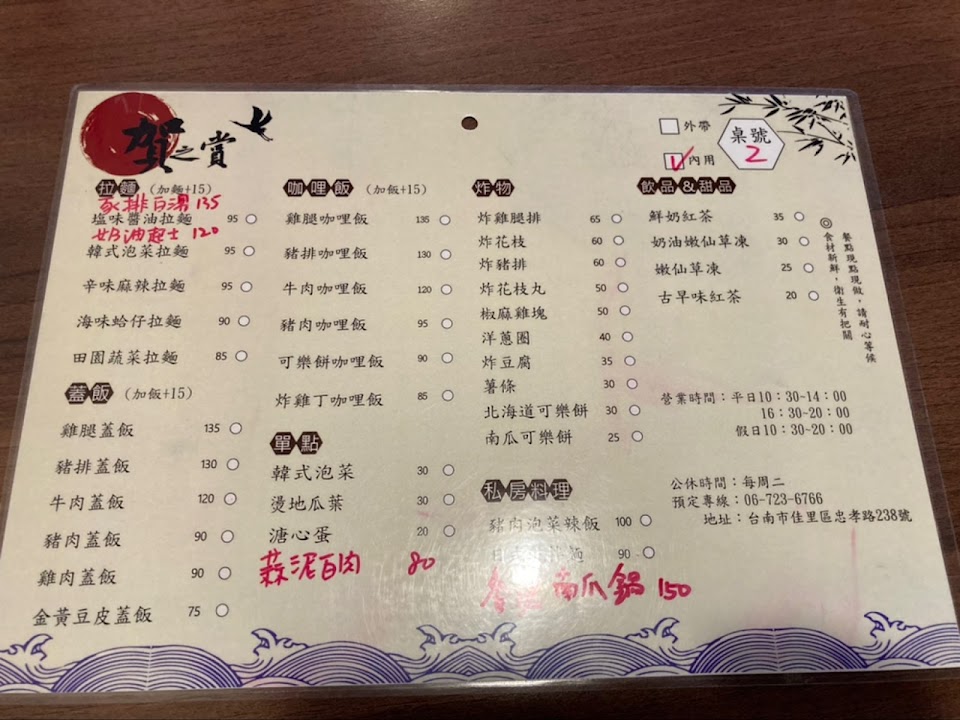 賀之賞
外帶
內用
桌號
2
拉麵 (加麵+15)
豚排白湯 135
塩味醬油拉麵 95
奶油起士 120
韓式泡菜拉麵 95
辛味麻辣拉麵 95
海味蛤仔拉麵 90
田園蔬菜拉麵 85
蓋飯 (加飯+15)
雞腿蓋飯 135
豬排蓋飯 130
牛肉蓋飯 120
豬肉蓋飯 90
雞肉蓋飯 90
金黃豆皮蓋飯 75
咖哩飯 (加飯+15)
雞腿咖哩飯 135
豬排咖哩飯 130
牛肉咖哩飯 120
豬肉咖哩飯 95
可樂餅咖哩飯 90
炸雞丁咖哩飯 85
單點
韓式泡菜 30
燙地瓜葉 30
溏心蛋 20
蒜泥白肉 80
炸物
炸雞腿排 65
炸花枝 60
炸豬排 60
炸花枝丸 50
椒麻雞塊 50
洋蔥圈 40
炸豆腐 35
薯條 30
北海道可樂餅 30
南瓜可樂餅 25
私房料理
豬肉泡菜辣飯 100
麵 90
南瓜鍋 150
飲品&甜品
鮮奶紅茶 35
奶油嫩仙草凍 30
嫩仙草凍 25
古早味紅茶 20
◎餐點現點現做，請耐心等候
食材新鮮，衛生有把關
營業時間：平日10：30-14：00
16：30-20：00
假日10：30-20：00
公休時間：每周二
預定專線：06-723-6766
地址：台南市佳里區忠孝路238號